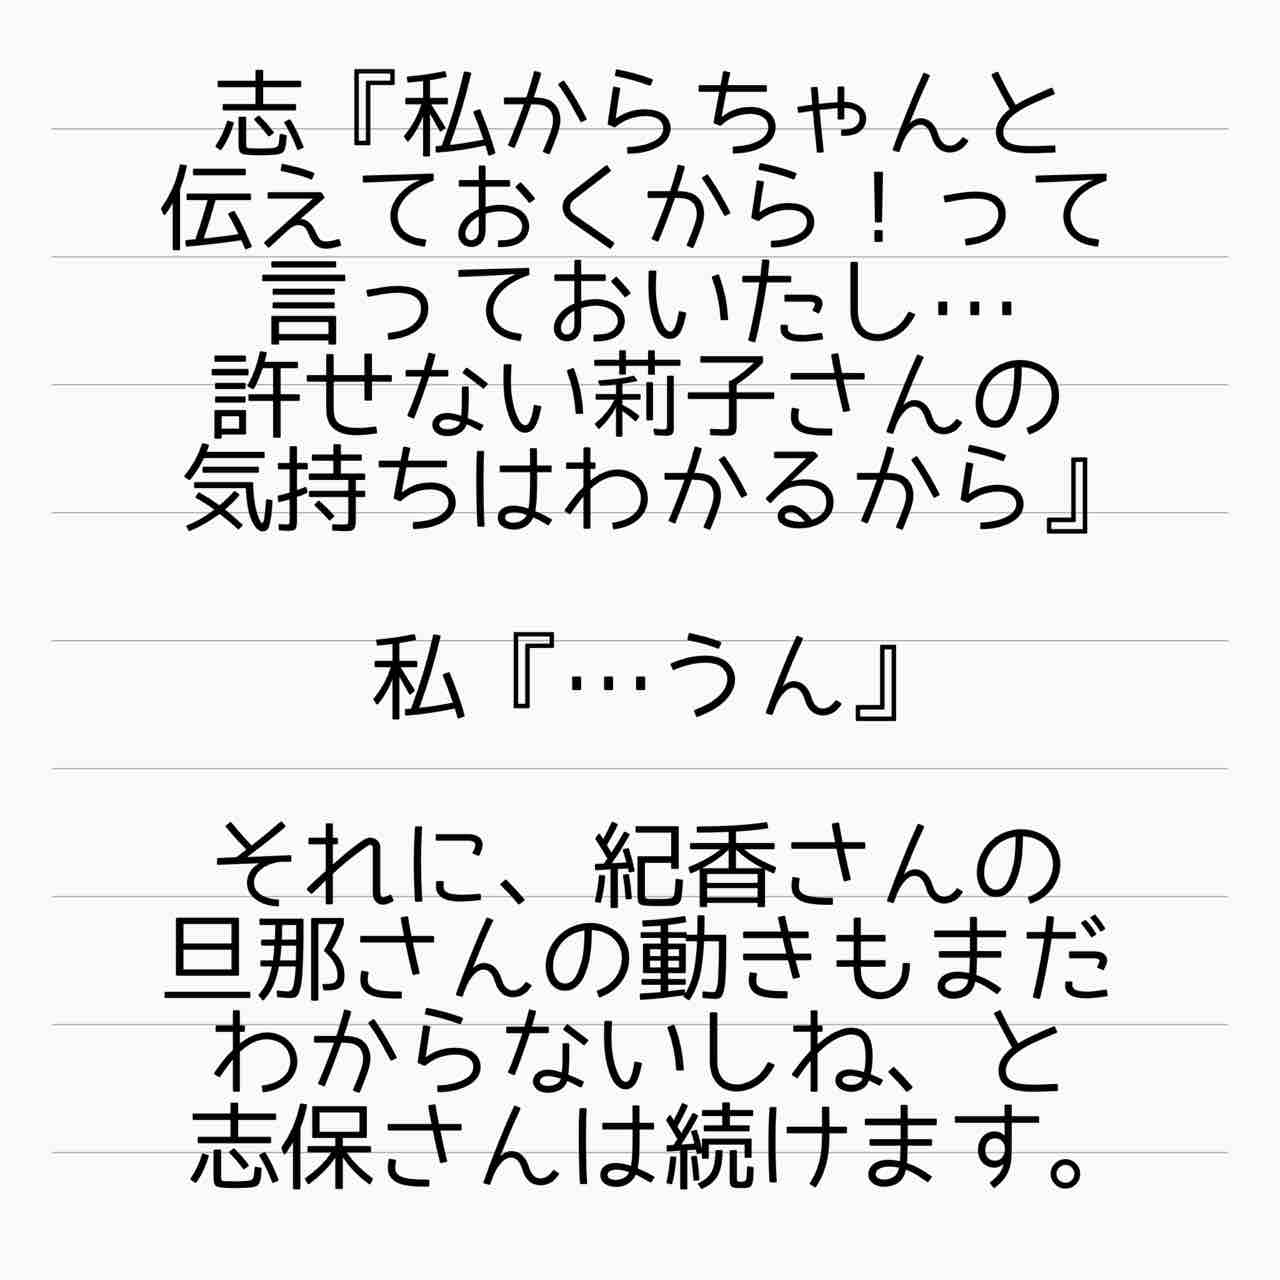 志『私からちゃんと
伝えておくから！って
言っておいたし…
許せない莉子さんの
気持ちはわかるから』
私『…うん』
それに、紀香さんの
旦那さんの動きもまだ
わからないしね、と
志保さんは続けます。